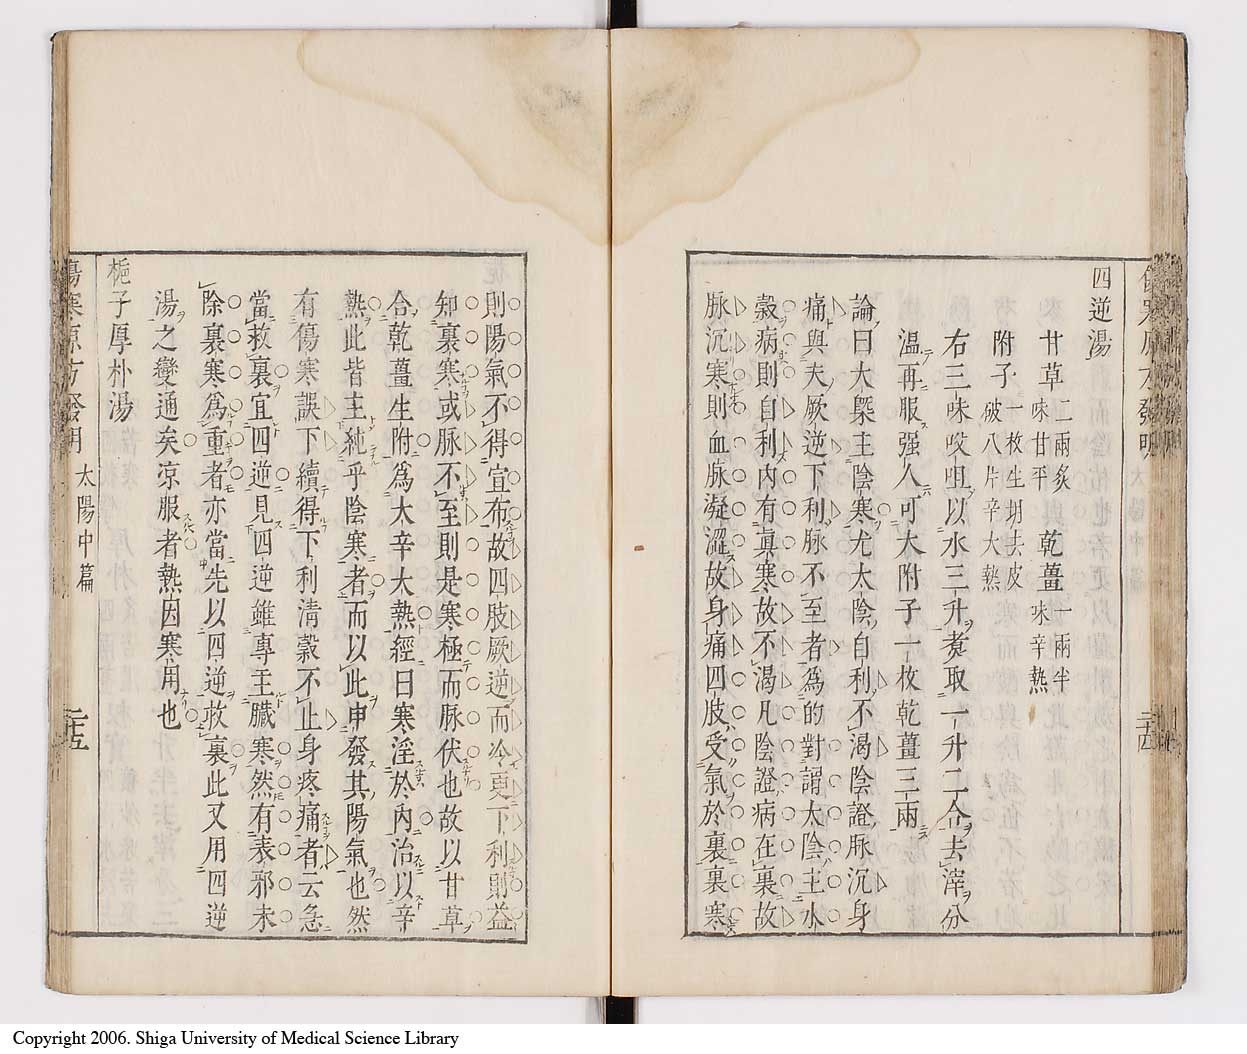 四逆湯
甘草 二兩炙 味甘平 乾薑 一兩半 味辛熱
附子 一枚生用去皮 破八片辛大熱
右三味㕮咀以水三升煮取一升二合去滓分
溫再服强人可大附子一枚乾薑三兩
論曰大槩主陰寒尤太陰自利不渴陰證脉沉身
痛與夫厥逆下利脉不至者為的對謂太陰主水
穀病則自利內有眞寒故不渴凡陰證病在裏故
脉沉寒則血脉凝澀故身痛四肢受氣於裏裏寒
則陽氣不得宣布故四肢厥逆而冷更下利則益
知裏寒或脉不至則是寒極而脉伏也故以甘草
合乾薑生附為大辛大熱經曰寒淫於內治以辛
熱此皆主純乎陰寒者而以此申發其陽氣也然
有傷寒誤下續得下利清穀不止身疼痛者云急
當救裏宜四逆見四逆雖專主臟寒然有表邪未
除裏寒為重者亦當先以四逆救裏此又用四逆
湯之變通矣凉服者熱因寒用也
梔子厚朴湯
傷寒原方發明 太陽中篇 二十五
Copyright 2006. Shiga University of Medical Science Library